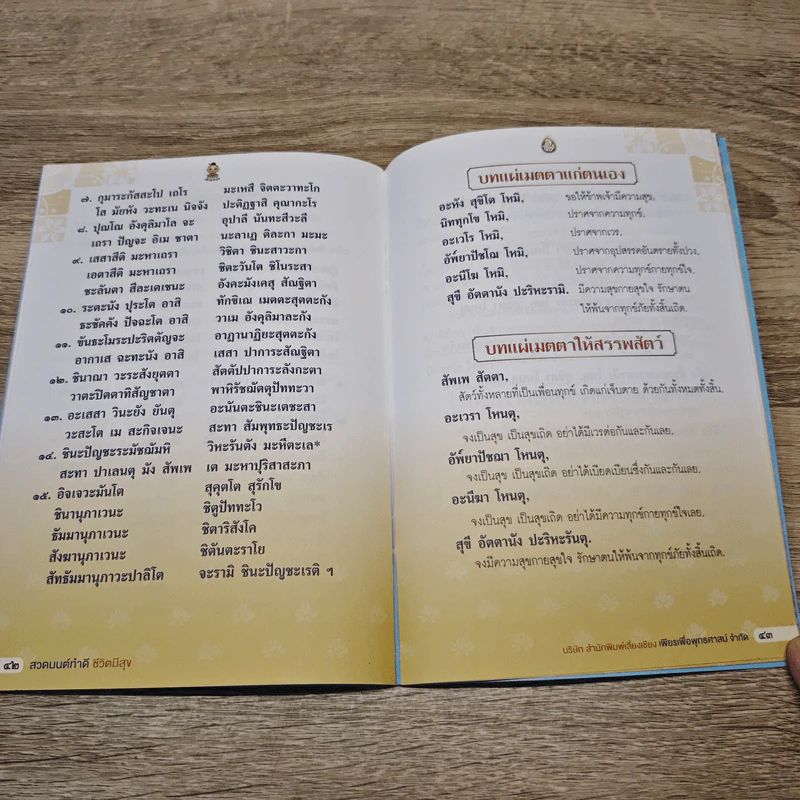 ๗. กุมาระกัสสะโป เถโร มะเหสี จิตตะวาทะโก
โส มัยหัง วะทะเน นิจจัง ปะติฏฐาสิ คุณากะโร
๘. ปุณโณ อังคุลิมาโล จะ อุปาลี นันทะสีวะลี
เถรา ปัญจะ อิเม ชาตา นะลาเฏ ติละกา มะมะ
๙. เสสาสีติ มะหาเถรา วิชิตา ชินะสาวะกา
เอตาสีติ มะหาเถรา ชิตะวันโต ชิโนระสา
ชะลันตา สีละเตเชนะ อังคะมังเคสุ สัณฐิตา
๑๐. ระตะนัง ปุระโต อาสิ ทักขิเณ เมตตะสุตตะกัง
ธะชัคคัง ปัจฉะโต อาสิ วาเม อังคุลิมาละกัง
๑๑. ขันธะโมระปะริตตัญจะ อาฏานาฏิยะสุตตะกัง
อากาเส ฉะทะนัง อาสิ เสสา ปาการะสัณฐิตา
๑๒. ชินาณา วะระสังยุตตา สัตตัปปาการะลังกะตา
วาตะปิตตาทิสัญชาตา พาหิรัชฌัตตุปัททะวา
๑๓. อะเสสา วินะยัง ยันตุ อะนันตะชินะเตชะสา
วะสะโต เม สะกิจเจนะ สะทา สัมพุทธะปัญชะเร
๑๔. ชินะปัญชะระมัชฌัมหิ วิหะรันตัง มะหีตะเล*
สะทา ปาเลนตุ มัง สัพเพ เต มะหาปุริสาสะภา
๑๕. อิจเจวะมันโต สุคุตโต สุรักโข
ชินานุภาเวนะ ชิตูปัททะโว
ธัมมานุภาเวนะ ชิตาริสังโค
สังฆานุภาเวนะ ชิตันตะราโย
สัทธัมมานุภาวะปาลิโต จะรามิ ชินะปัญชะเรติ ฯ
๔๒ สวดมนต์ทำดี ชีวิตมีสุข
บทแผ่เมตตาแก่ตนเอง
อะหัง สุขิโต โหมิ, ขอให้ข้าพเจ้ามีความสุข,
นิททุกโข โหมิ, ปราศจากความทุกข์,
อะเวโร โหมิ, ปราศจากเวร,
อัพ๎ยาปัชโฌ โหมิ, ปราศจากอุปสรรคอันตรายทั้งปวง,
อะนีโฆ โหมิ, ปราศจากความทุกข์กายทุกข์ใจ,
สุขี อัตตานัง ปะริหะรามิ. มีความสุขกายสุขใจ รักษาตน
ให้พ้นจากทุกข์ภัยทั้งสิ้นเถิด.
บทแผ่เมตตาให้สรรพสัตว์
สัพเพ สัตตา,
สัตว์ทั้งหลายที่เป็นเพื่อนทุกข์ เกิดแก่เจ็บตาย ด้วยกันทั้งหมดทั้งสิ้น.
อะเวรา โหนตุ,
จงเป็นสุข เป็นสุขเถิด อย่าได้มีเวรต่อกันและกันเลย.
อัพ๎ยาปัชฌา โหนตุ,
จงเป็นสุข เป็นสุขเถิด อย่าได้เบียดเบียนซึ่งกันและกันเลย.
อะนีฆา โหนตุ,
จงเป็นสุข เป็นสุขเถิด อย่าได้มีความทุกข์กายทุกข์ใจเลย.
สุขี อัตตานัง ปะริหะรันตุ.
จงมีความสุขกายสุขใจ รักษาตนให้พ้นจากทุกข์ภัยทั้งสิ้นเถิด.
บริษัท สำนักพิมพ์เลี่ยงเชียง เพียรเพื่อพุทธศาสน์ จำกัด ๔๓